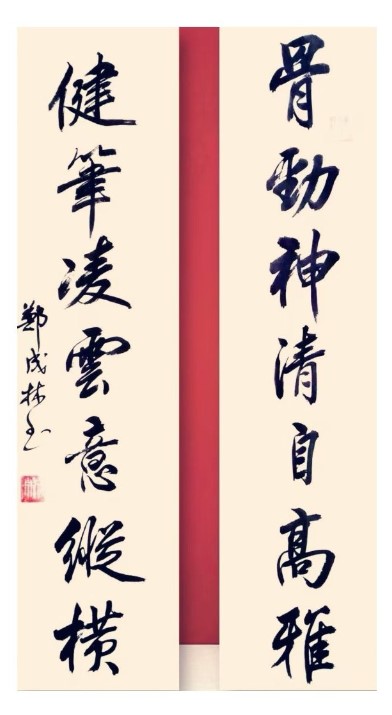 骨勁神清自高雅
健筆凌雲意縱橫
鄭成林书